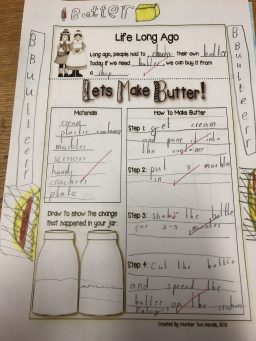 Butter
Life Long Ago
Long ago, people had to churn their own butter
Today if we need butter, we can buy it from
a shop.
Lets Make Butter!
Materials
cream
plastic container
marbles
scissors
hands
crackers
plate
How To Make Butter
Step 1: get cream
and poor it into
the container
Step 2: put 1 marble
in
Step 3: shake the bottle
for 2-5 minutes
Step 4: cut the bottle
and spread the
butter on the crackers
Enjoy!!
Draw to show the change
that happened in your jar.
Created By Number Two Pencils, 2013